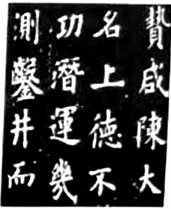 贊咸陳大
名上德不
功潛運幾
測鑿井而